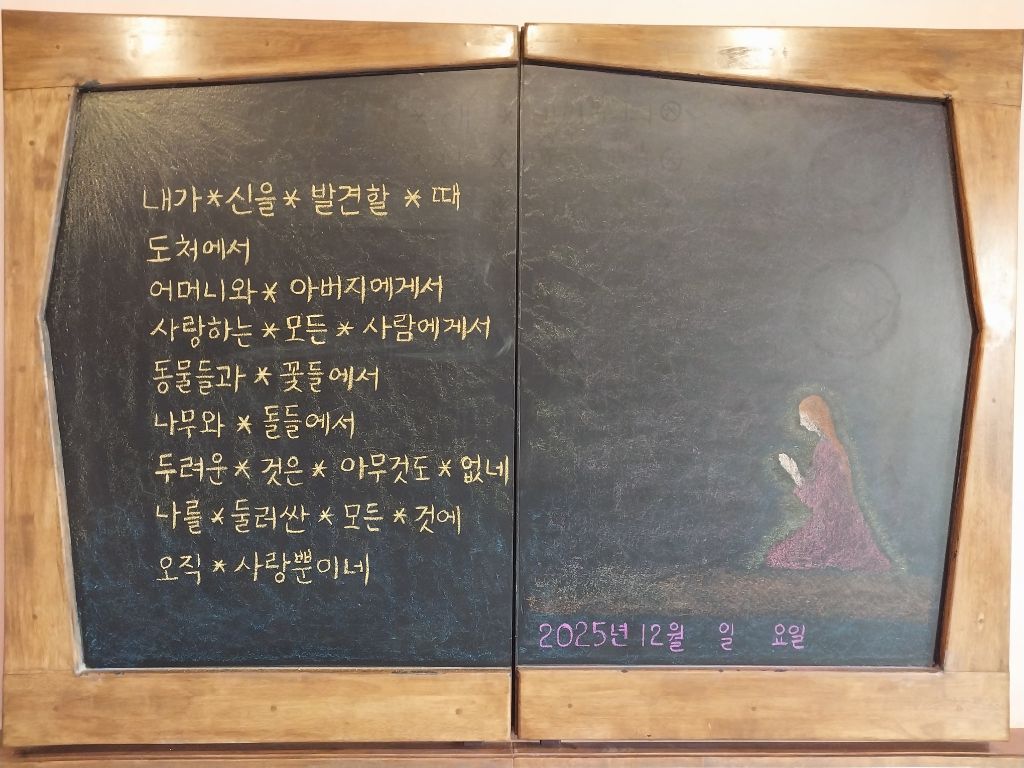 내가*신을*발견할*때
도처에서
어머니와*아버지에게서
사랑하는*모든*사람에게서
동물들과*꽃들에서
나무와*돌들에서
두려운*것은*아무것도*없네
나를*둘러싼*모든*것에
오직*사랑뿐이네
2025년 12월 일 요일